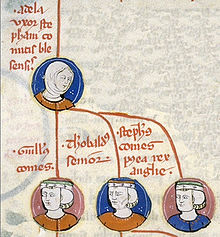 · adela
uxor ste
phani co
mitis ble
sensis.
Guill's
comes.
Thobald'
senior
stephs
comes
postea rex
anglie.